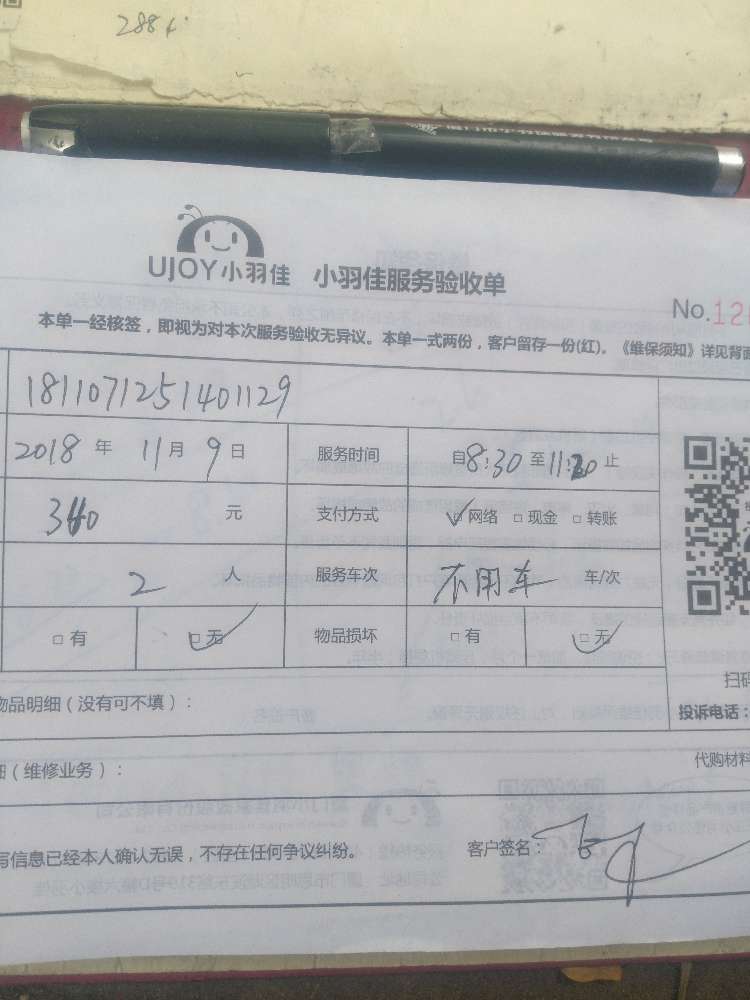 288
UJOY小羽佳 小羽佳服务验收单
No.12
本单一经核签，即视为对本次服务验收无异议。本单一式两份，客户留存一份(红)。《维保须知》详见背面
1811071251401129
2018 年 11 月 9 日 服务时间 自8:30至11:30止
元 支付方式 网络 现金 转账
2 人 服务车次 不用车 车/次
有 无 物品损坏 有 无
扫码
物品明细（没有可不填）：
投诉电话：
细（维修业务）：
代购材料
写信息已经本人确认无误，不存在任何争议纠纷。 客户签名：